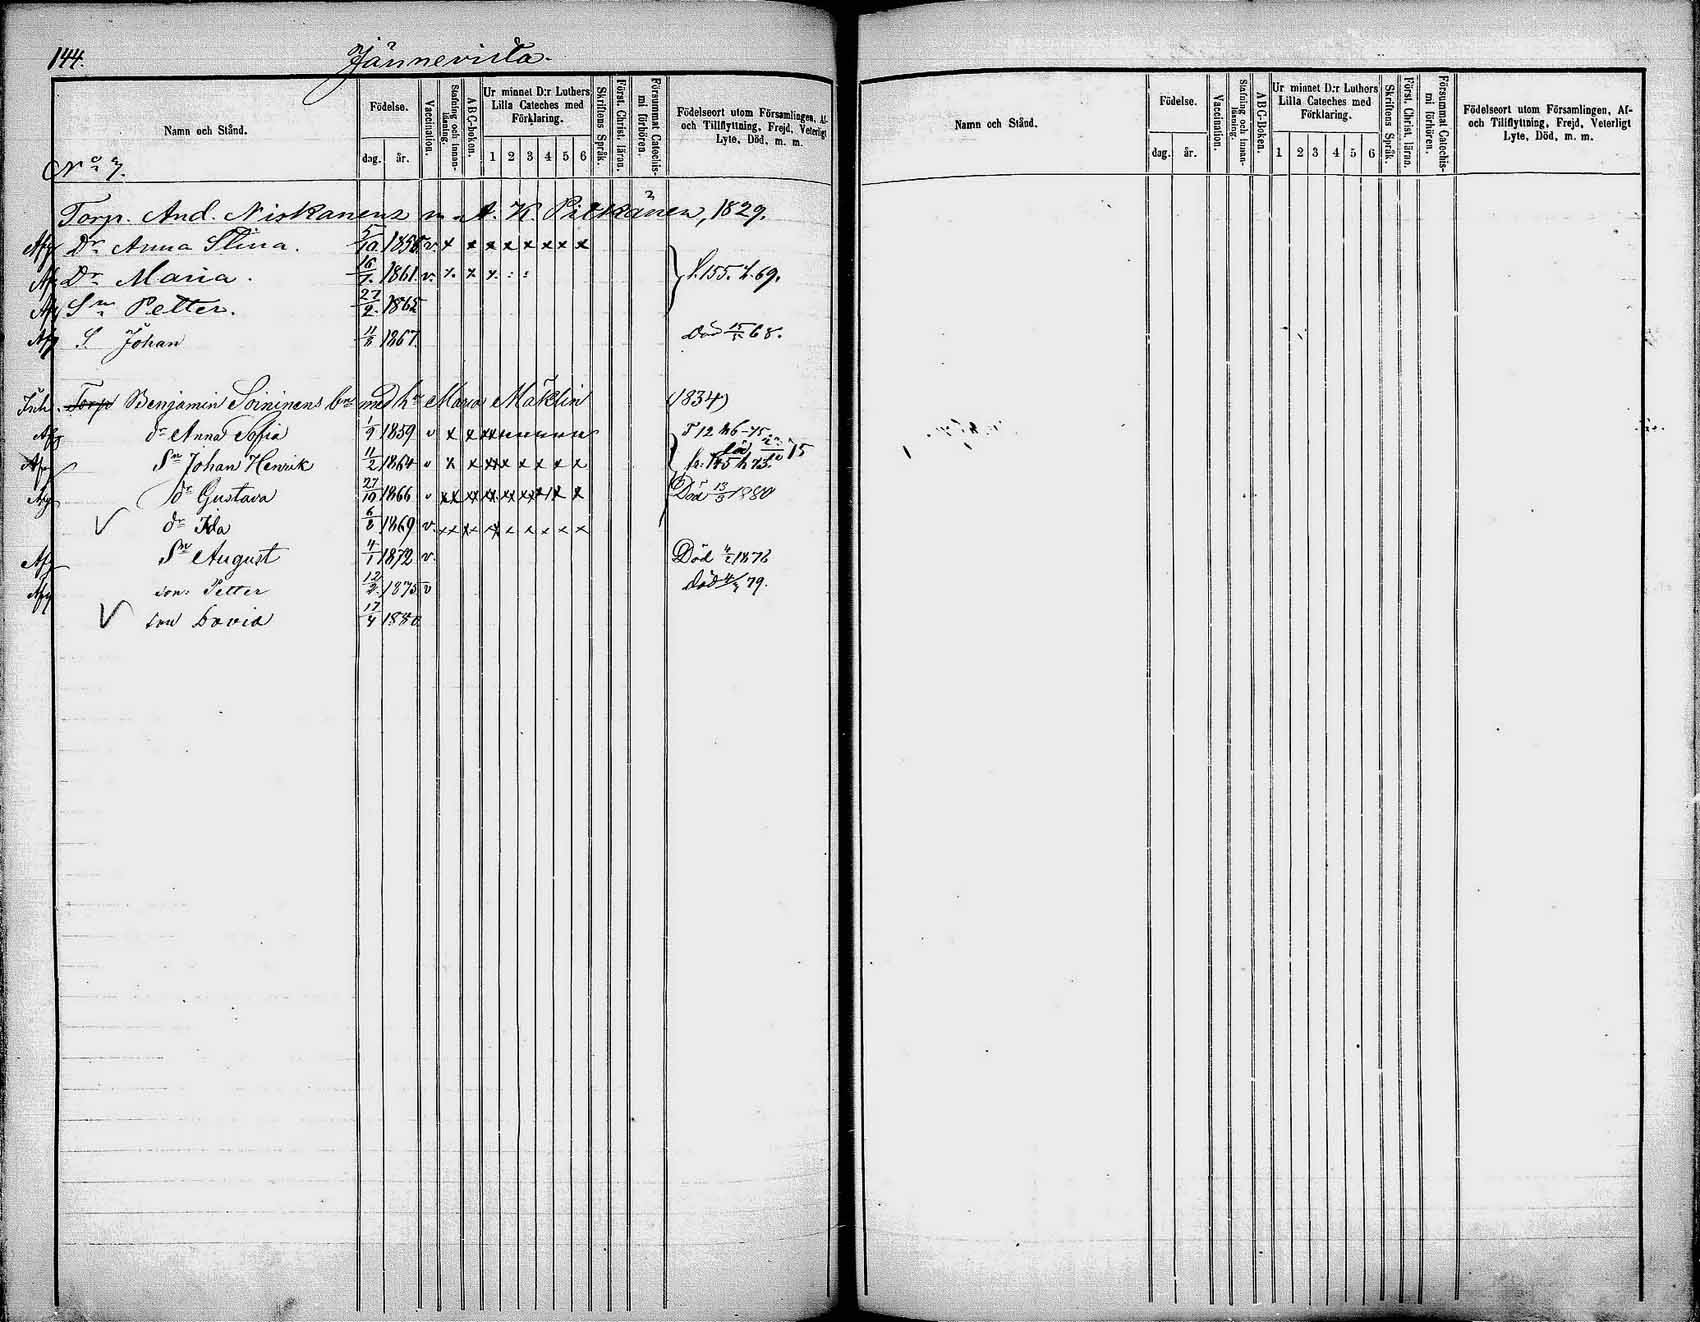 144.
Jännevirta.
Namn och Stånd.
Födelse.
dag.
år.
Vaccination.
Stafning och innan-
läsning.
ABC-boken.
Ur minnet D:r Luthers
Lilla Cateches med
Förklaring.
1 2 3 4 5 6
Skriftens Språk.
Först. Christ. läran.
Försummat Catechis-
mi förhören.
Födelseort utom Församlingen, Af-
och Tillflyttning, Frejd, Veterligt
Lyte, Död, m. m.
No 7.
Torp. And. Niskanens m. A. K. Pitkänen, 1829.
Afg Dr Anna Stina. 5/10. v. x x x x x x x x
Afg Dr Maria. 16/7. 1861. v. x x x : : f. 155. h. 69.
Afg Sn Petter. 27/2. 1865
Afg S. Johan 11/8 1867. död 15/5 68.
Inh. Torp Benjamin Soininens med hu Maria Mäklin (1834)
Afg dr Anna Sofia 1/9 1859 v x x
Afg Sn Johan Henrik 11/2 1864 v x x xx x x x x x
Afg dr Gustava 27/10 1866 v xx xx xx xx xx x x x Död 13/5 1880
V dr Ida 6/8 1869 v. xx xx x x x x x x
Afg Sn August 4/1 1872 v. Död 4/2 1876
Afg son. Petter 12/2. 1875 v död 4/3 79.
V son David 17/4 1880
Namn och Stånd.
Födelse.
dag.
år.
Vaccination.
Stafning och innan-
läsning.
ABC-boken.
Ur minnet D:r Luthers
Lilla Cateches med
Förklaring.
1 2 3 4 5 6
Skriftens Språk.
Först. Christ. läran.
Försummat Catechis-
mi förhören.
Födelseort utom Församlingen, Af-
och Tillflyttning, Frejd, Veterligt
Lyte, Död, m. m.